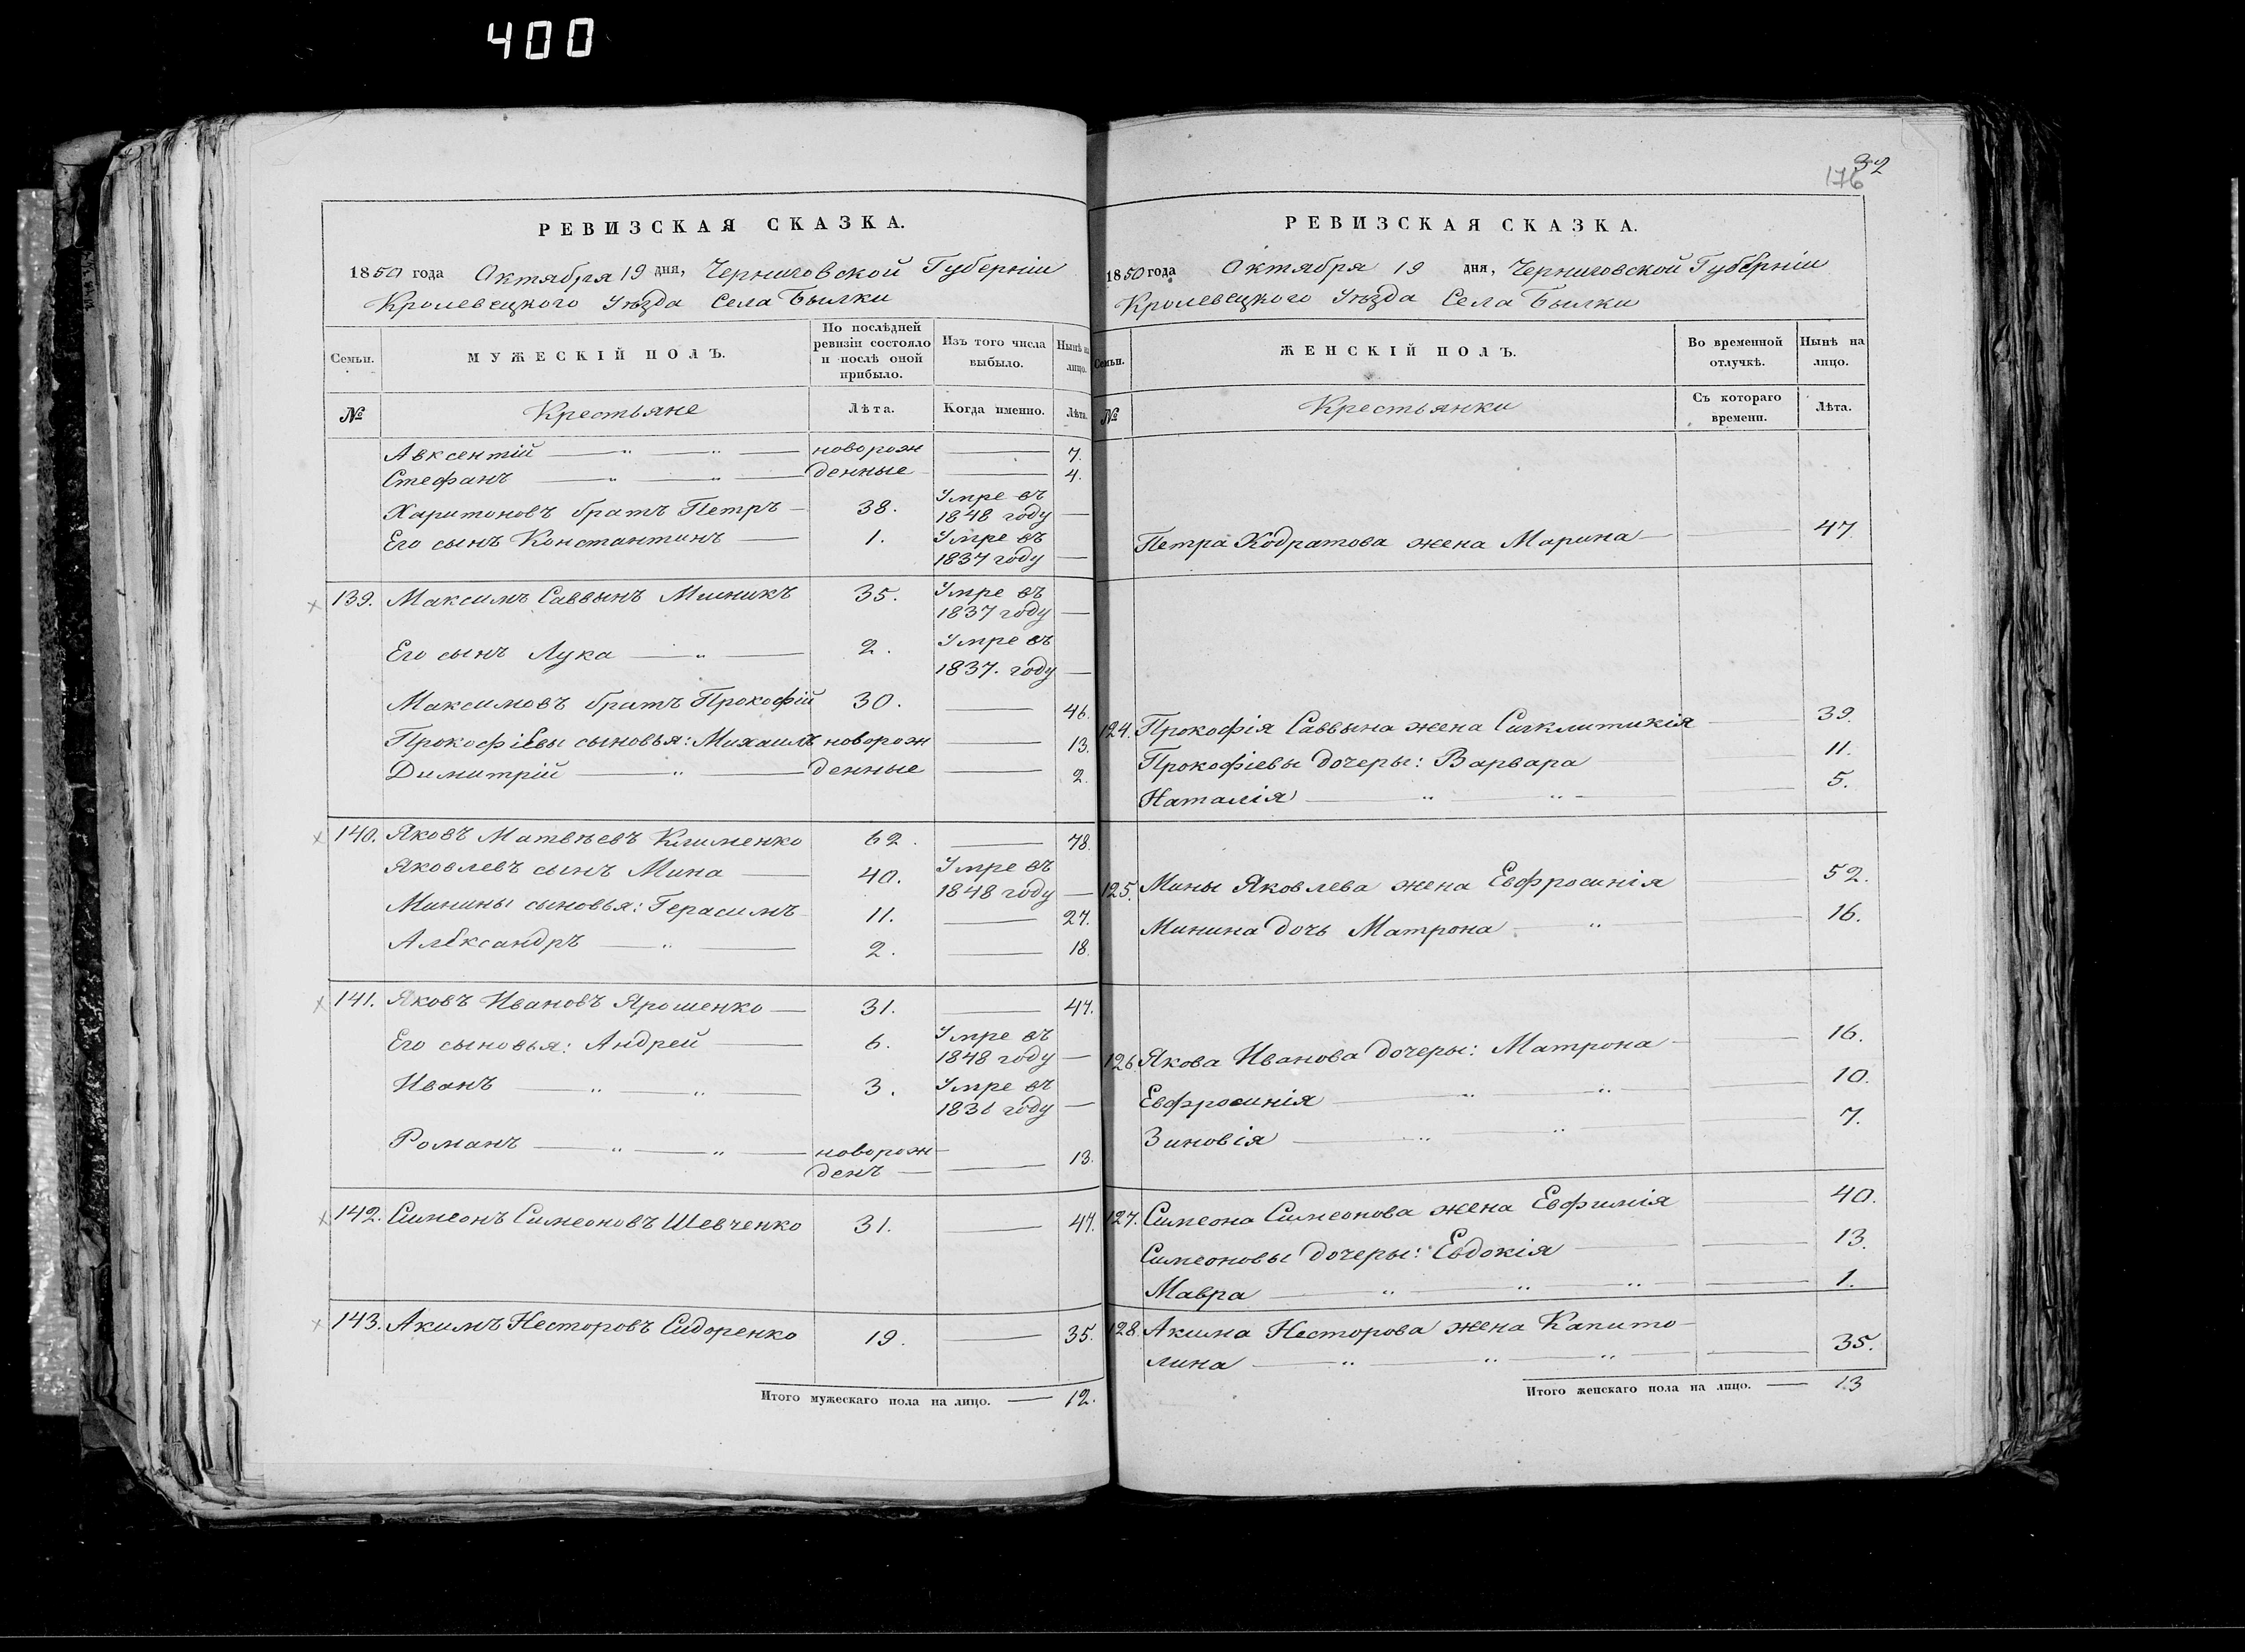 400
РЕВИЗСКАЯ СКАЗКА.
1850 года Октября 19 дня, Черниговской Губерніи
Кролевецкого Уѣзда Села Былки
Семьи.
МУЖЕСКІЙ ПОЛЪ.
По послѣдней
ревизіи состояло
и послѣ оной
прибыло.
Изъ того числа
выбыло.
Нынѣ на
лицо.
№
Крестьяне
Лѣта.
Когда именно.
Лѣта.
Авксентій — „ — „ — новорож — 7.
Стефанъ — „ — „ — денные — 4.
Харитоновъ братъ Петръ — 38. Умре въ
1848 году —
Его сынъ Константинъ — 1. Умре въ
1837 году —
139. Максимъ Саввынъ Мшникъ 35. Умре въ
1837 году —
Его сынъ Лука — „ — 2. Умре въ
1837. году —
Максимовъ братъ Прокофій 30. — 46.
Прокофіевы сыновья: Михаилъ новорож — 13.
Димитрій — „ — денные — 2.
140. Яковъ Матвѣевъ Клименко 62. — 78.
Яковлевъ сынъ Мина — 40. Умре въ
1848 году —
Минины сыновья: Герасимъ 11. — 27.
Александръ — „ — 2. — 18.
141. Яковъ Ивановъ Ярошенко — 31. — 47.
Его сыновья: Андрей — 6. Умре въ
1848 году —
Иванъ — „ — „ — 3. Умре въ
1836 году —
Романъ — „ — „ — новорож-
денъ — — 13.
142. Симеонъ Симеоновъ Шевченко 31. — 47.
143. Акимъ Несторовъ Сидоренко 19. — 35.
Итого мужескаго пола на лицо. — 12.
32
176
РЕВИЗСКАЯ СКАЗКА.
1850 года Октября 19 дня, Черниговской Губерніи
Кролевецкого Уѣзда Села Былки
Семьи.
ЖЕНСКІЙ ПОЛЪ.
Во временной
отлучкѣ.
Нынѣ на
лицо.
№
Крестьянки
Съ котораго
времени.
Лѣта.
Петра Кодратова жена Марина — — 47.
124. Прокофія Саввына жена Сигклитикія — 39.
Прокофіевы дочеры: Варвара — 11.
Наталія — „ — „ — — 5.
125. Мины Яковлева жена Евфросинія — 52.
Минина дочь Матрона — „ — — 16.
126. Якова Иванова дочеры: Матрона — — 16.
Евфросинія — „ — „ — — 10.
Зиновія — „ — „ — — 7.
127. Симеона Симеонова жена Евфимія — 40.
Симеоновы дочеры: Евдокія — — 13.
Мавра — „ — „ — „ — — 1.
128. Акима Несторова жена Капито-
лина — „ — „ — „ — — 35.
Итого женскаго пола на лицо. — 13